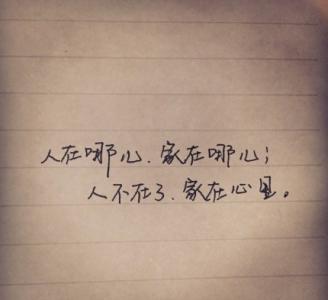 人在哪儿、家在哪儿；
人不在了、家在心里。